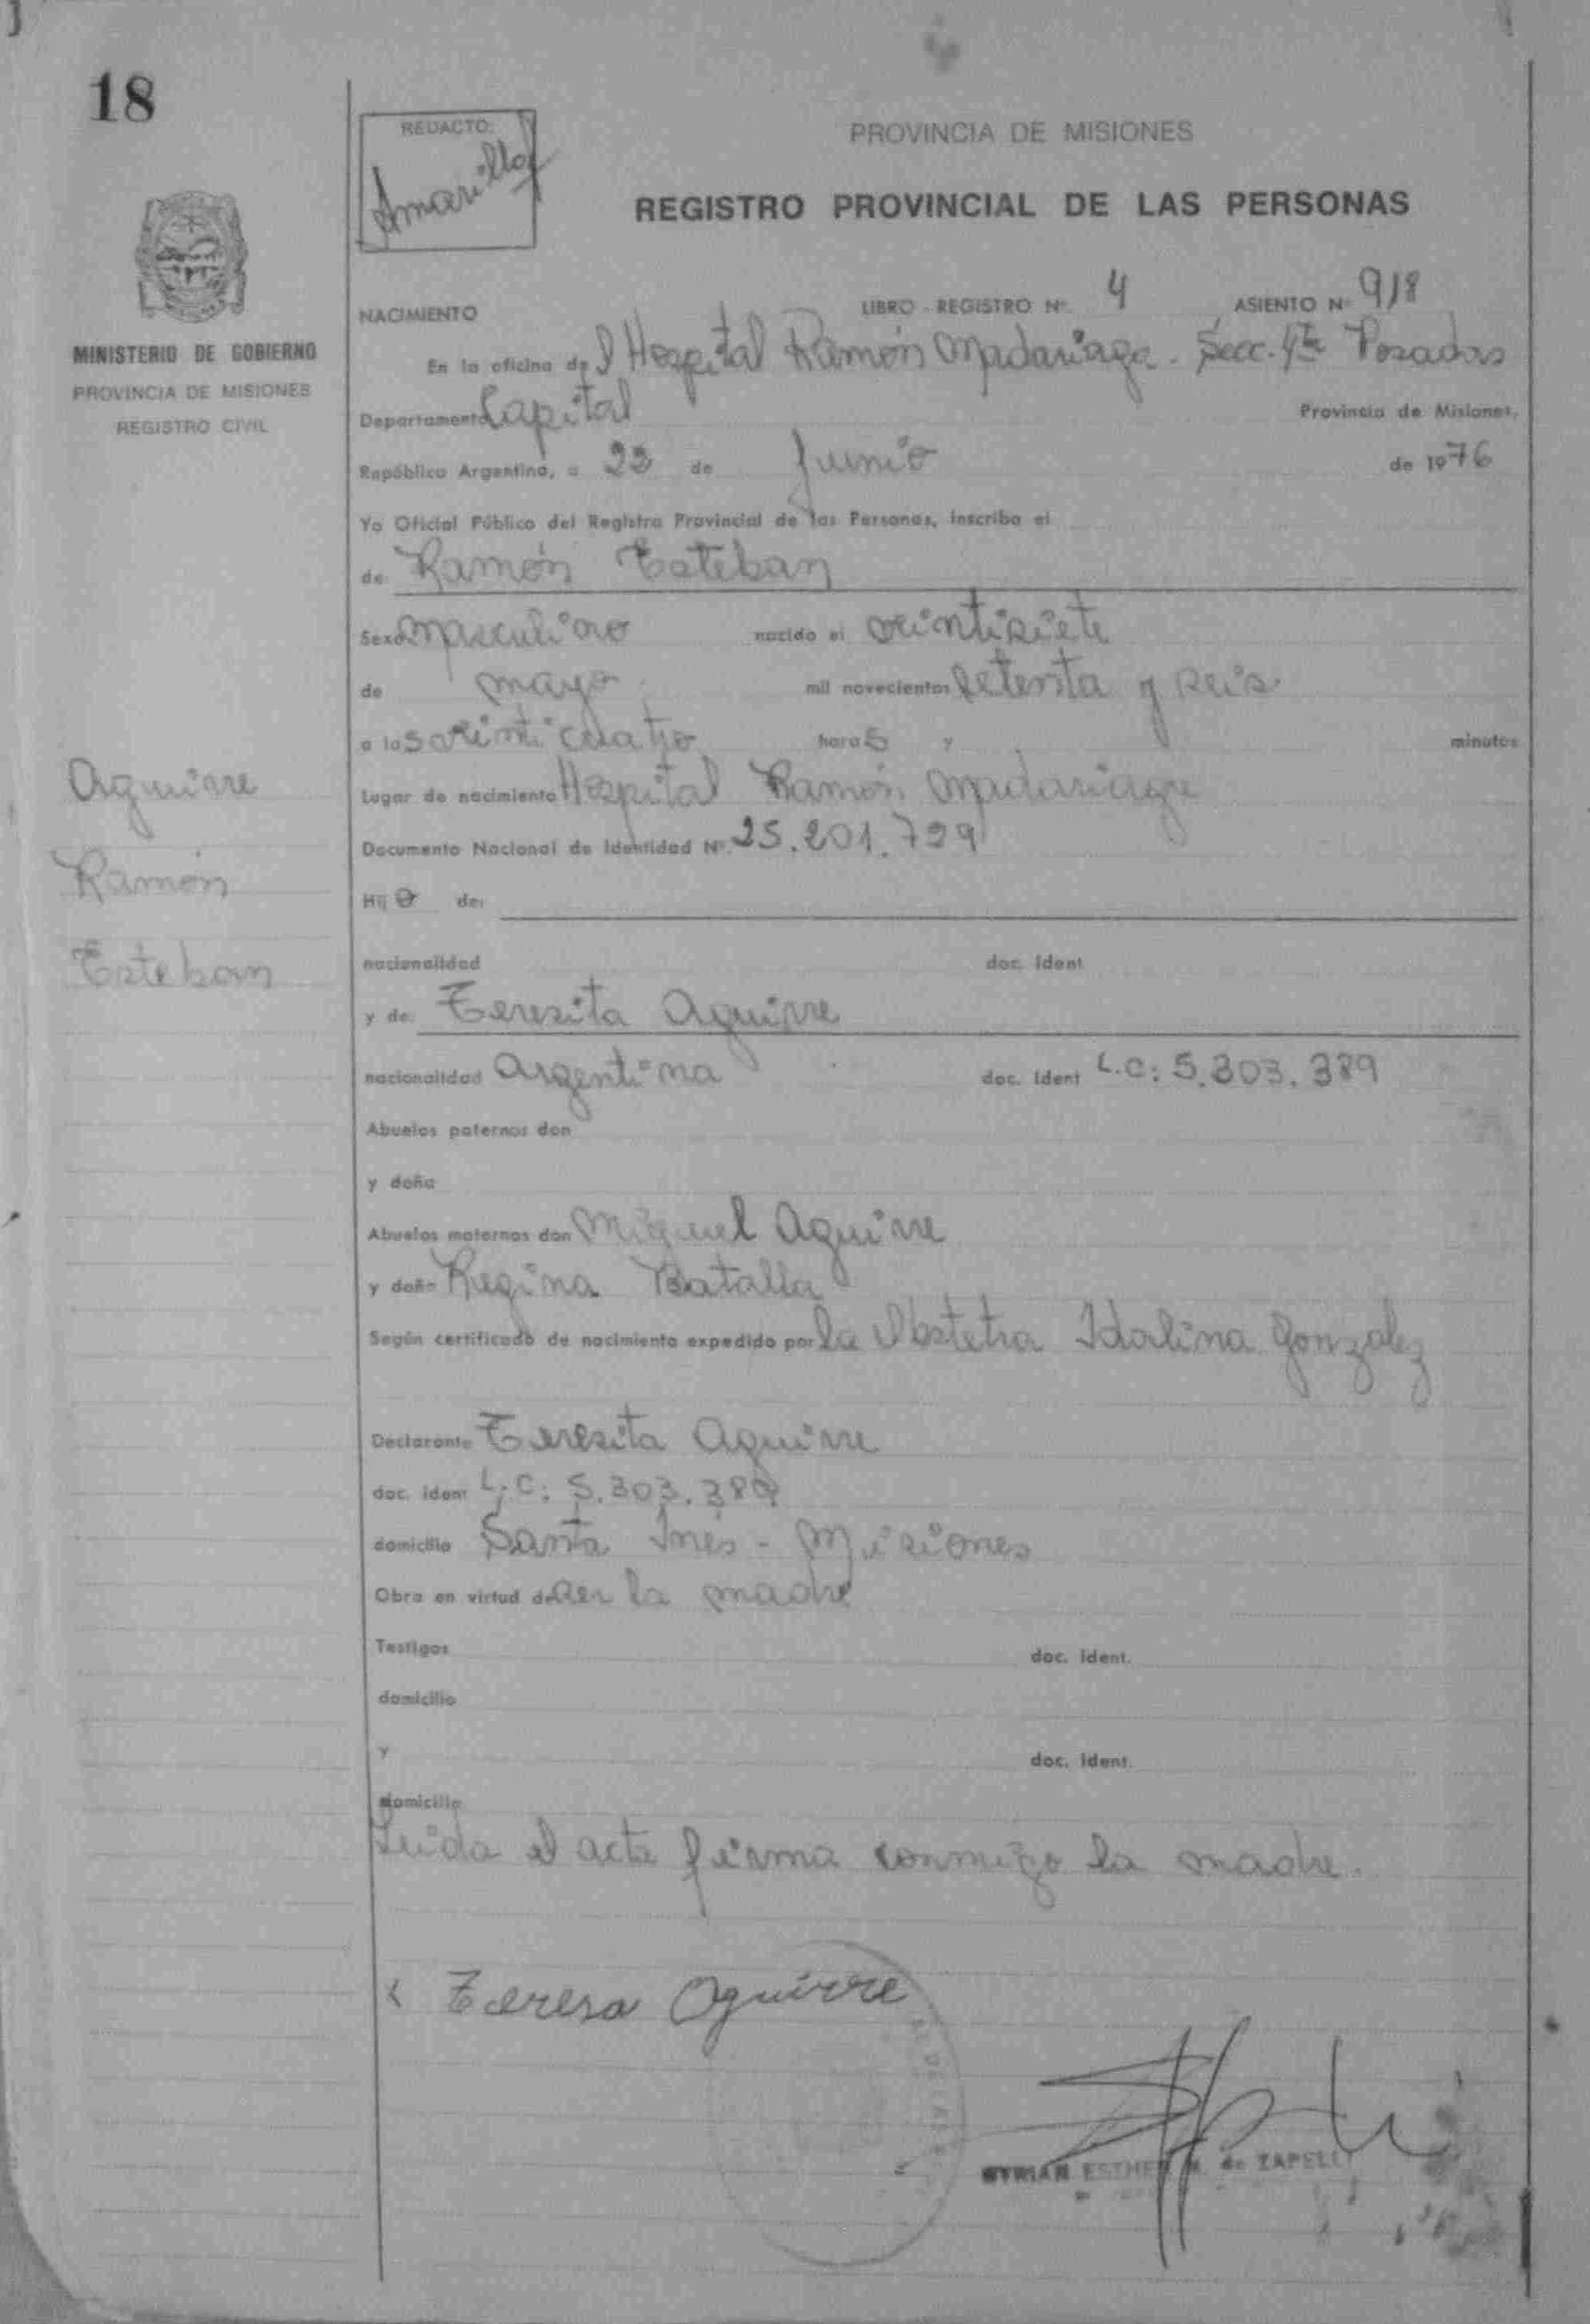 18
REDACTO:
Amarilla
PROVINCIA DE MISIONES
REGISTRO PROVINCIAL DE LAS PERSONAS
MINISTERIO DE GOBIERNO
PROVINCIA DE MISIONES
REGISTRO CIVIL
NACIMIENTO LIBRO - REGISTRO Nº. 4 ASIENTO Nº 918
En la oficina del Hospital Ramón Madariaga. Secc. 4ta Posadas
Departamento Capital Provincia de Misiones,
República Argentina, a 22 de Junio de 1976
Yo Oficial Público del Registro Provincial de las Personas, inscribo el
de Ramón Esteban
Sexo masculino nacido el veintisiete
de mayo mil novecientos setenta y seis
a las veinticuatro horas y minutos
Lugar de nacimiento Hospital Ramón Madariaga
Documento Nacional de Identidad Nº. 25.201.729
Hijo de:
nacionalidad doc. Ident
y de: Teresita Aguirre
nacionalidad Argentina doc. Ident L.C: 5.303.389
Abuelos paternos don
y doña
Abuelos maternos don Miguel Aguirre
y doña Regina Batalla
Según certificado de nacimiento expedido por la Obstetra Idalina Gonzalez
Declarante Teresita Aguirre
doc. ident L.C: 5.303.389
domicilio Santa Inés - Misiones
Obra en virtud de ser la madre
Testigos doc. ident.
domicilio
y doc. ident.
domicilio
Leida el acta firma conmigo la madre.
Teresa Aguirre
MYRIAN ESTHER de ZAPELLI
Aguirre
Ramón
Esteban